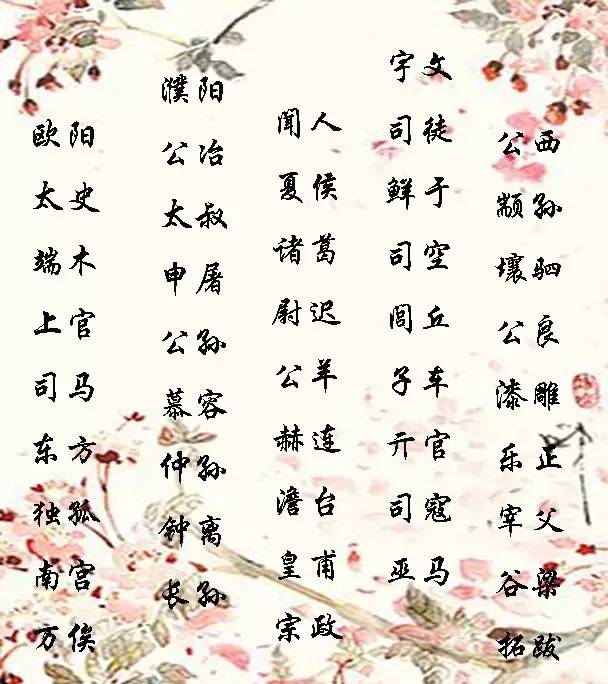 欧阳
太史
端木
上官
司马
东方
独孤
南宫
万俟
濮阳
公冶
太叔
申屠
公孙
慕容
仲孙
钟离
长孙
闻人
夏侯
诸葛
尉迟
公羊
赫连
澹台
皇甫
宗政
宇文
司徒
鲜于
司空
闾丘
子车
亓官
司寇
巫马
公西
颛孙
壤驷
公良
漆雕
乐正
宰父
谷梁
拓跋